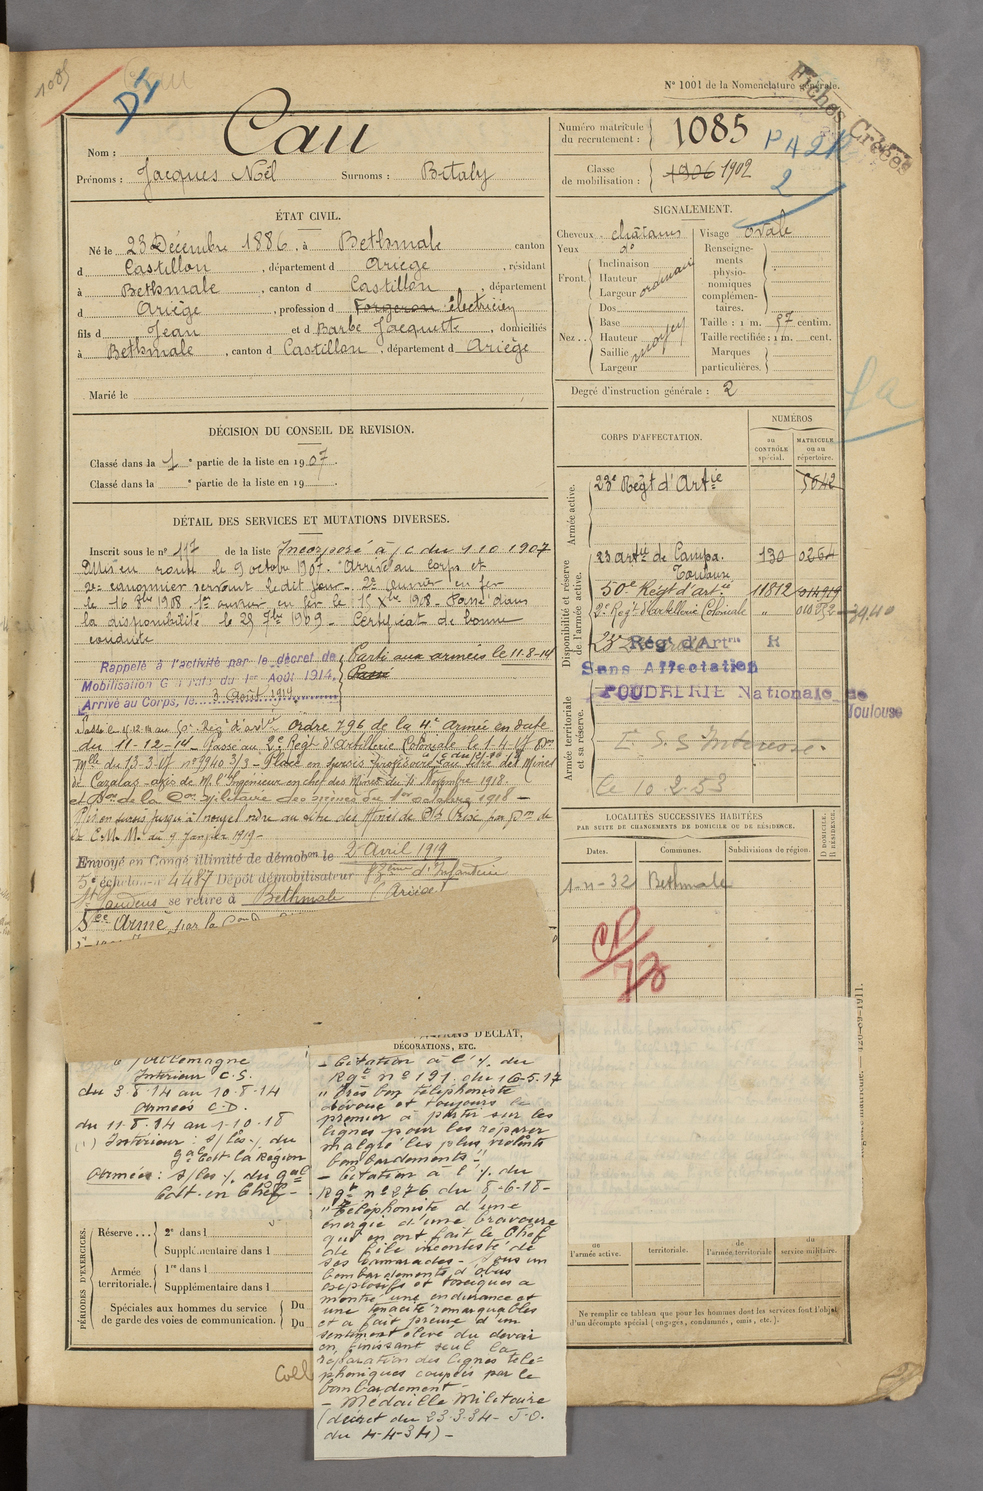 1085
Cau
D4
N° 1001 de la Nomenclature générale.
Fiches Créées
Nom : Cau
Prénoms : Jacques Noël Surnoms : Bitaly
Numéro matricule du recrutement : 1085
PA2R
2
Classe de mobilisation : 1906 1902
ÉTAT CIVIL.
Né le 23 Décembre 1886, à Bethmale canton
d Castillon, département d Ariège, résidant
à Bethmale, canton d Castillon, département
d Ariège, profession d Forgeron électricien
fils d Jean et d Barbe Jacquette, domiciliés
à Bethmale, canton d Castillon, département d Ariège
Marié le
SIGNALEMENT.
Cheveux châtains Visage ovale
Yeux d°
Front. Inclinaison
Hauteur
Largeur
ordinaire
Nez .. Dos
Base
Hauteur
Saillie
Largeur
moyen
Renseignements physionomiques complémentaires.
Taille : 1 m. 57 centim.
Taille rectifiée : 1 m. cent.
Marques particulières.
Degré d'instruction générale : 2
DÉCISION DU CONSEIL DE REVISION.
Classé dans la 1 e partie de la liste en 1907.
Classé dans la e partie de la liste en 19
CORPS D'AFFECTATION.
NUMÉROS
au CONTRÔLE spécial.
MATRICULE ou au répertoire.
Armée active.
23e Régt d'Artie 5042
Disponibilité et réserve de l'armée active.
23 artie de Campa. Toulouse 130 0264
50e Régt d'artie 11812
2e Régt d'artillerie Coloniale "
3940
Régt d'Artrie R
Sans Affectation
Armée territoriale et sa réserve.
POUDRERIE Nationale de Toulouse
le 10.2.53
DÉTAIL DES SERVICES ET MUTATIONS DIVERSES.
Inscrit sous le n° 117 de la liste Incorporé à /c du 1 10 1907
Mis en route le 9 octobre 1907. Arrivé au corps et
2e canonnier servant ledit jour. 2e ouvrier en fer
le 16 8bre 1908. 1er ouvrier en fer le 15 Xbre 1908. Passé dans
la disponibilité le 25 7bre 1909. Certificat de bonne
conduite
Rappelé à l'activité par le décret de
Mobilisation Générale du 1er Août 1914.
Arrivé au Corps, le 3 Août 1914
Parti aux armées le 11-8-14
Passé
ordre 796 de la 4e armée en date
du 11-12-14. Passé au 2e Régt d'Artillerie Coloniale le 1-4-17
Mlle du 13-3-17 n° 7940 3/3 - Placé en sursis provisoire au titre des Mines
de Cazalas - avis de M. l'Ingénieur en chef des Mines du 4 Novembre 1918.
Mis en sursis jusqu'à nouvel ordre au titre des Mines de
du 9 Janvier 1919-
Envoyé en Congé illimité de démobon le 2 Avril 1919
5e échelon n° 4487 Dépôt démobilisateur 83ème d'Infanterie
St Gaudens se retire à Bethmale (Ariège)
LOCALITÉS SUCCESSIVES HABITÉES
PAR SUITE DE CHANGEMENTS DE DOMICILE OU DE RÉSIDENCE.
Dates. Communes. Subdivisions de région. D DOMICILE. R RÉSIDENCE.
1-11-32 Bethmale
CP/78
Intérieur C.S.
du 3.8.14 au 10.8.14
Armées C.D.
du 11.8.14 au 1-10-18
(1) Intérieur : s/les /. du
gal Cdt la Région
Armées : s/les /. du gal
Cdt en Chef -
D'ÉCLAT,
DÉCORATIONS, ETC.
- Citation à l'/. du
Rgt n° 191 du 16-5-17
" Très bon téléphoniste
dévoué et toujours le
premier à partir sur les
lignes pour les réparer
malgré les plus violents
bombardements "
- Citation à l'/. du
Rgt n° 276 du 8-6-18-
" Téléphoniste d'une
énergie d'une bravoure
qui en ont fait le Chef
de file incontesté de
ses camarades - Sous un
bombardement d'obus
explosifs et toxiques a
montré une endurance et
une tenacité remarquables
et a fait preuve d'un
sentiment élevé du devoir
en finissant seul la
réparation des lignes télé-
phoniques coupées par le
bombardement -
- Médaille Militaire
(décret du 23.3.34 - J.O.
du 4-4-34) -
PÉRIODES D'EXERCICES.
Réserve ... 2e dans l
Supplémentaire dans l
Armée territoriale. 1re dans l
Supplémentaire dans l
Spéciales aux hommes du service de garde des voies de communication. Du
Du
de l'armée active.
territoriale.
de l'armée territoriale
du service militaire.
Ne remplir ce tableau que pour les hommes dont les services font l'objet
d'un décompte spécial (engagés, condamnés, omis, etc.).